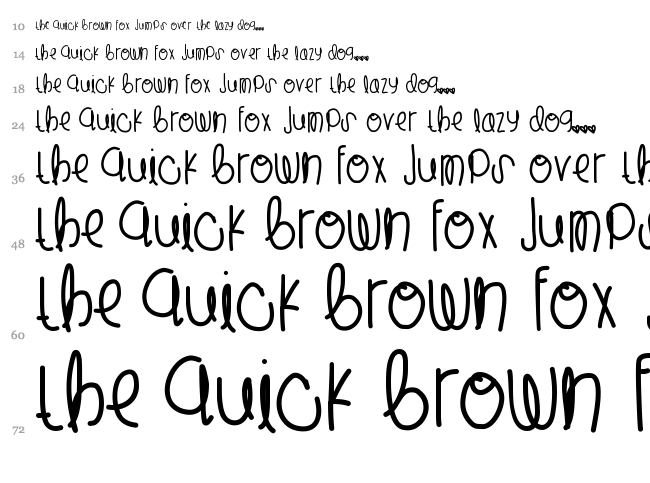 10 the quick brown fox jumps over the lazy dog...
14 the quick brown fox jumps over the lazy dog...
18 the quick brown fox jumps over the lazy dog...
24 the quick brown fox jumps over the lazy dog...
36 the quick brown fox jumps over th
48 the quick brown fox jumps
60 the quick brown fox
72 the quick brown